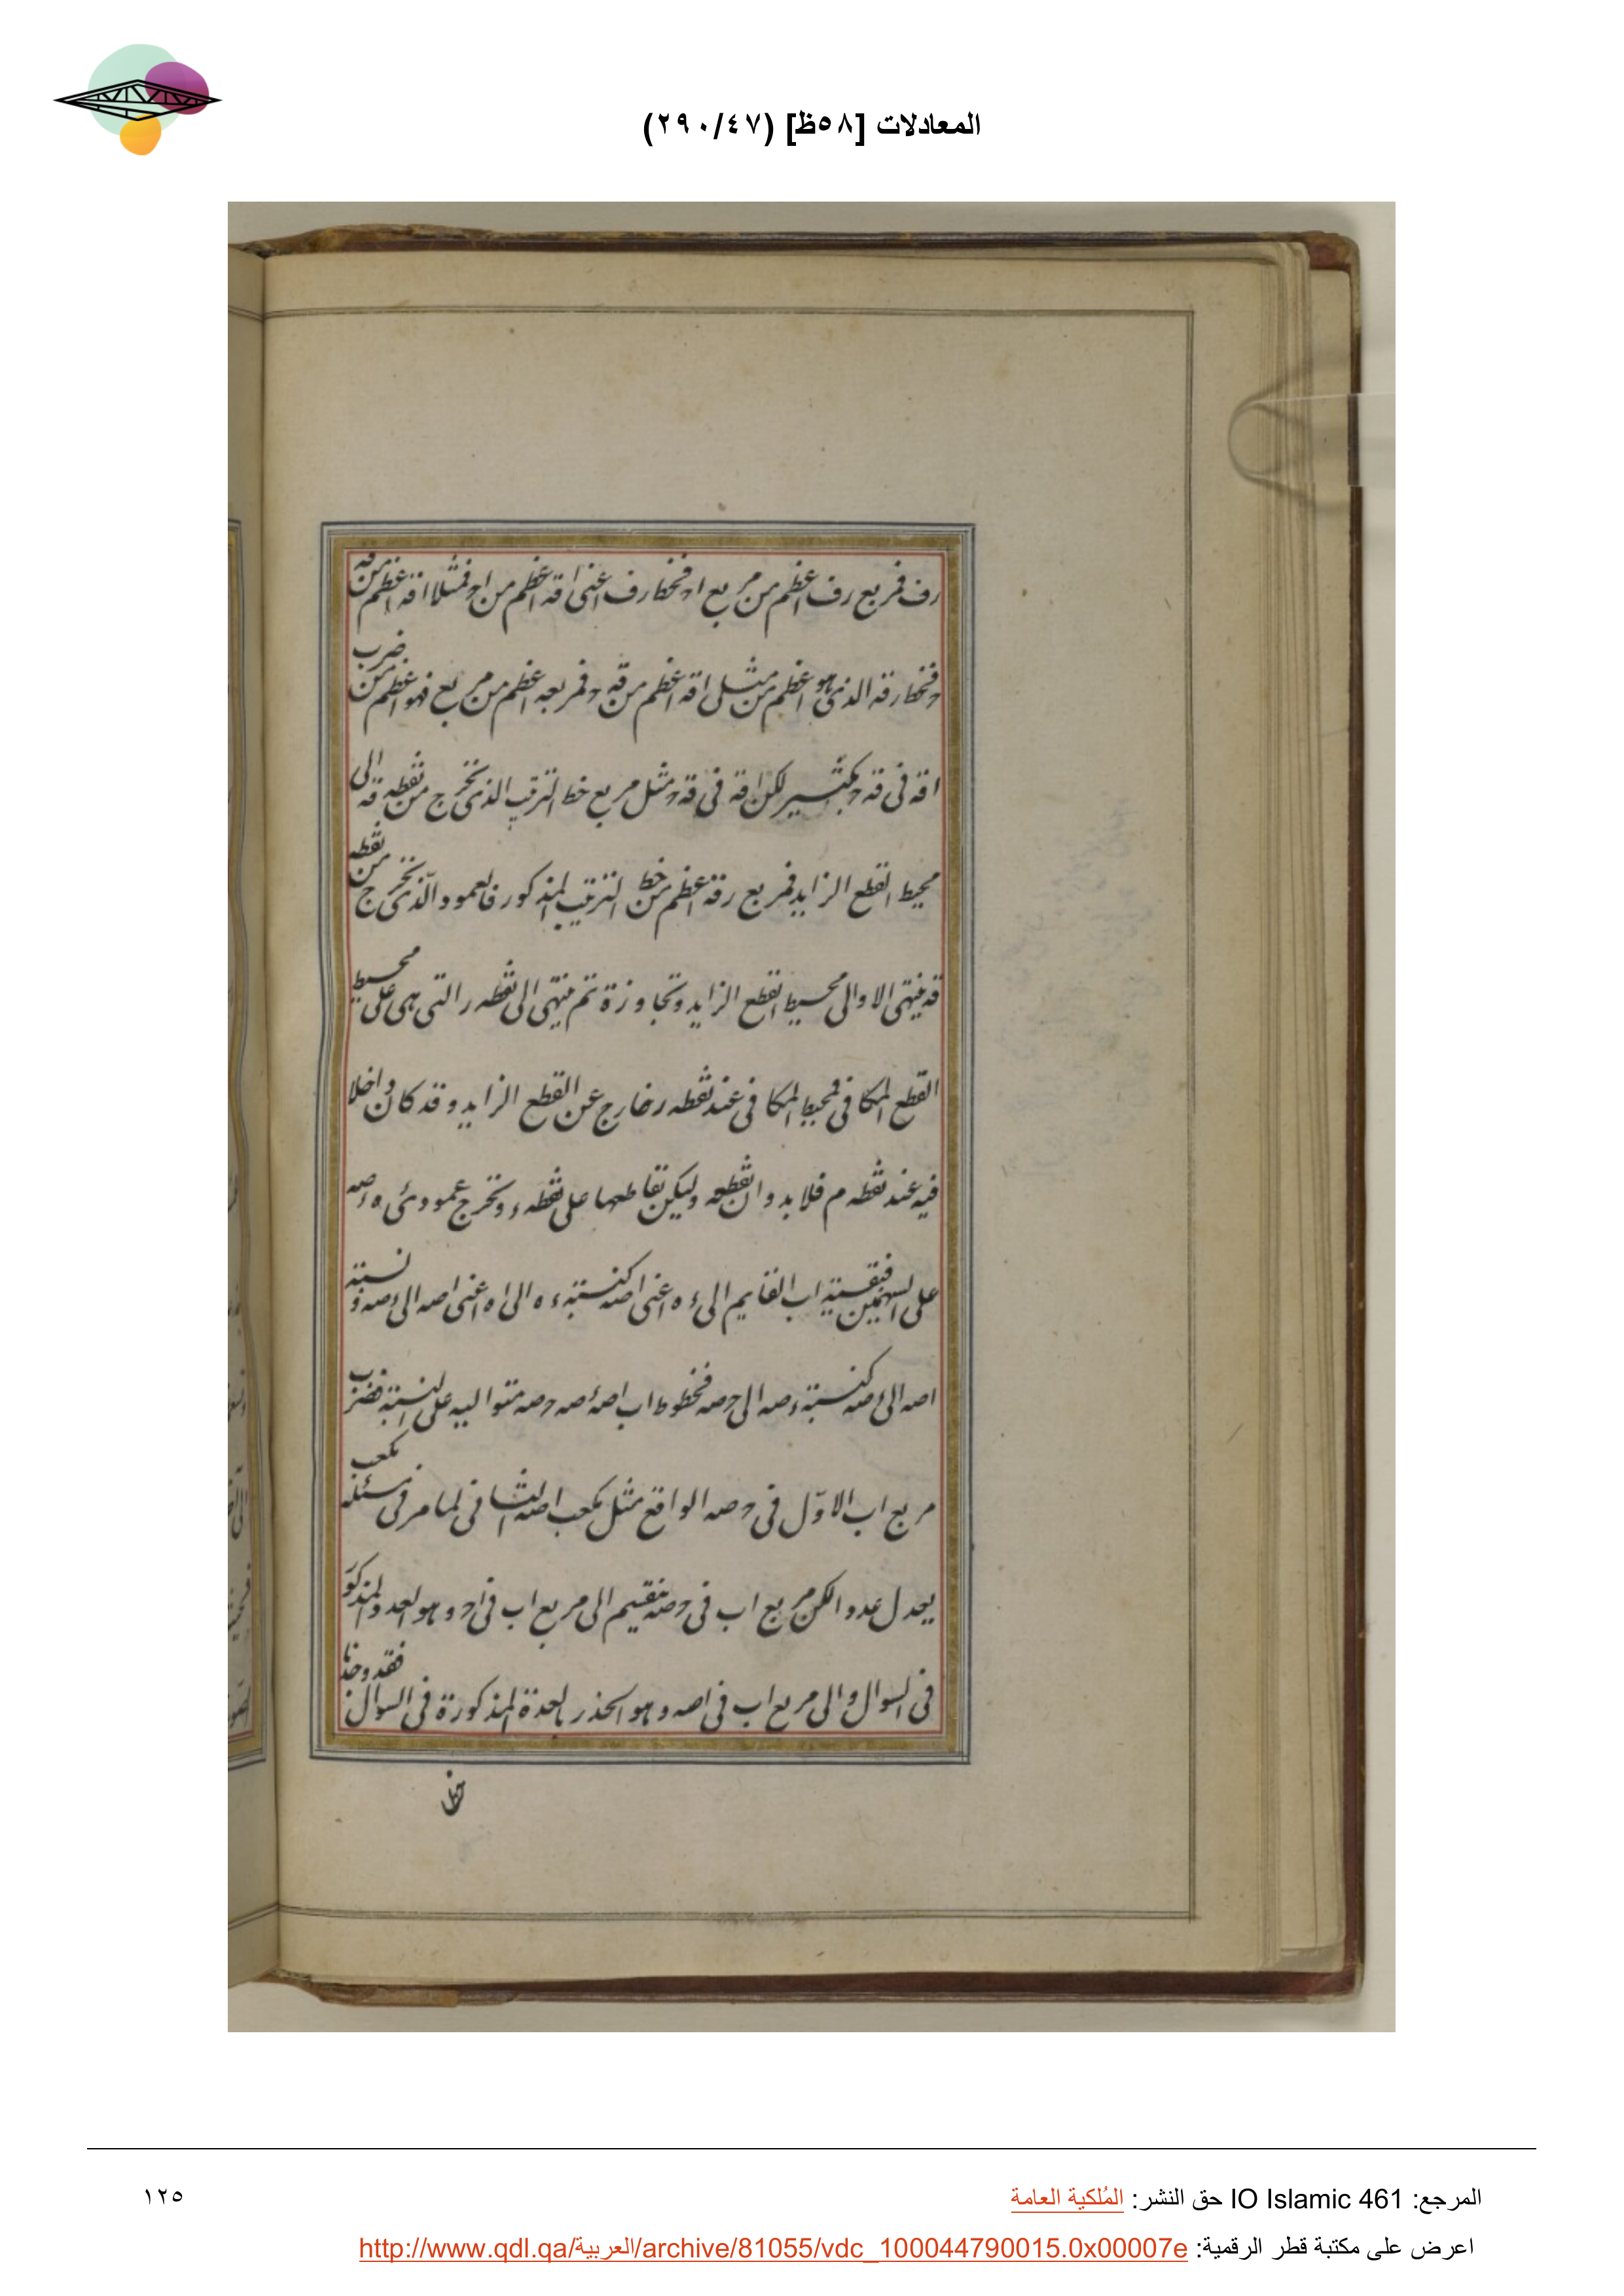 المعادلات [٥٨ظ] (٢٩٠/٤٧)
رف فمربع رف اعظم من مربع اح فخط رف اعنى اقه اعظم من اح فمثلا اقه اعظم من قه
ح فخط رقه الذى هو اعظم من مثلى اقه اعظم من قه ح فمربعه اعظم من مربع فهو اعظم من ضرب
اقه فى قه ح بكثير لكن اقه فى قه ح مثل مربع خط الترتيب الذى يخرج من نقطه قه الى
محيط القطع الزايد فمربع رقه اعظم من خط الترتيب المذكور فالعمود الذى يخرج من نقطه
قه ينتهى الاوالى محيط القطع الزايد وتجاوزة ثم ينتهى الى نقطه ر التى هى على محيط
القطع المكافى فمحيط المكافى عند نقطه ر خارج عن القطع الزايد وقد كان داخلا
فيه عند نقطه م فلا بد وان نقطعه وليكن تقاطعها على نقطه ء ونخرج عمودى ء ه ء صه
على السهمين فنسبة اب القايم الى ء ه اعنى اصه كنسبته ء ه الى ا ه اعنى اصه الى ء صه ونسبته
اصه الى ء صه كنسبته ء صه الى ح صه فخطوط اب اصه ء صه ح صه متواليه على النسبته فضرب
مربع اب الاول فى ح صه الواقع مثل مكعب اصه الثانى لما مر فى مسئله مكعب
يعدل عددا لكن مربع اب فى ح صه ينقسم الى مربع اب فى اح وهو العدد المذكور
فى السوال والى مربع اب فى اصه وهو الجذر بالعدة المذكورة فى السوال فقد وجدنا
خط
المرجع: IO Islamic 461 حق النشر: المُلكية العامة
١٢٥
اعرض على مكتبة قطر الرقمية: http://www.qdl.qa/العربية/archive/81055/vdc_100044790015.0x00007e